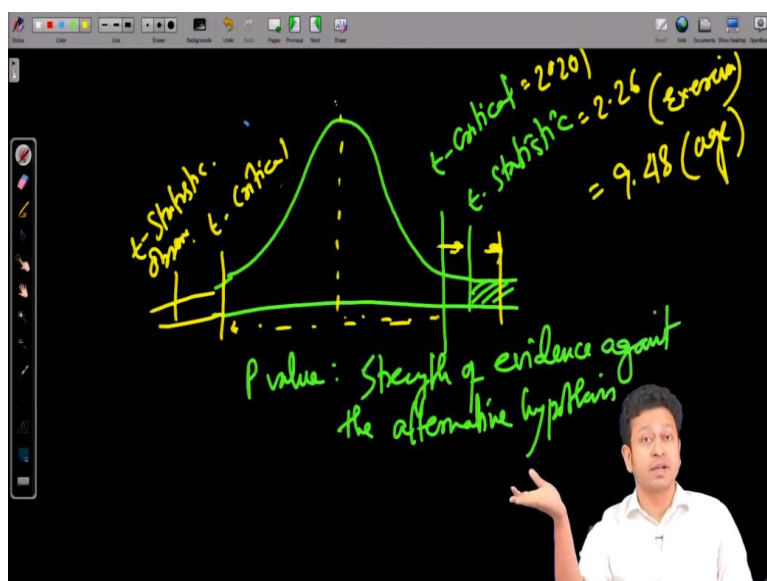 Styles Color Line Eraser Backgrounds Undo Redo Pages Previous Next Erase Board Web Documents Show Desktop OpenBoard
t-critical = 2.201
t-statistic = 2.26 (Exercise)
= 9.48 (age)
t-statistic
t-critical
P value: Strength of evidence against
the alternative hypothesis